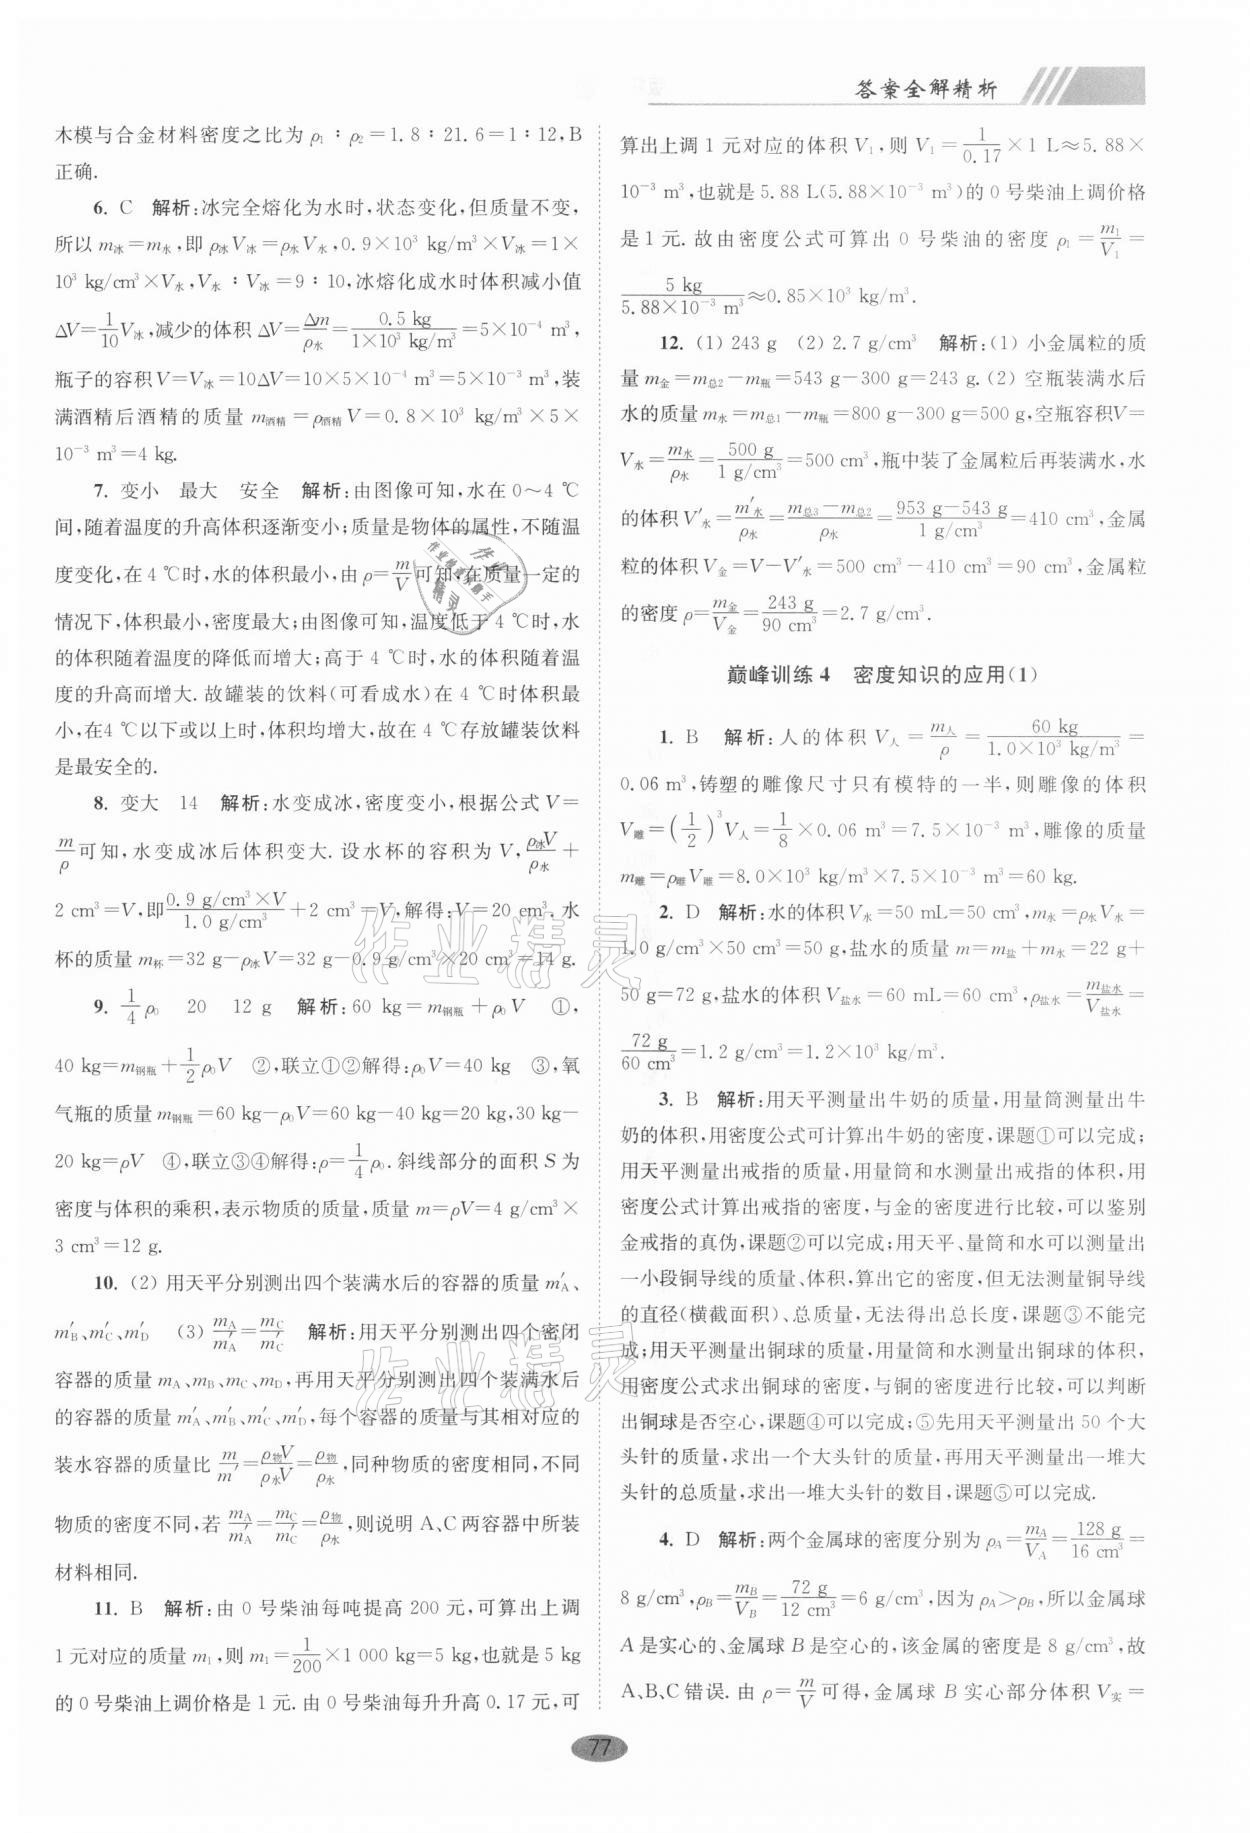 答案全解精析
木模与合金材料密度之比为 ρ₁∶ρ₂=1.8∶21.6=1∶12,B
正确.
6. C 解析:冰完全熔化为水时,状态变化,但质量不变,
所以 m冰=m水,即 ρ冰V冰=ρ水V水,0.9×10³ kg/m³×V冰=1×
10³ kg/cm³×V水,V水∶V冰=9∶10,冰熔化成水时体积减小值
ΔV=1/10V冰,减少的体积 ΔV=Δm/ρ水=0.5 kg/1×10³ kg/m³=5×10⁻⁴ m³,
瓶子的容积V=V冰=10ΔV=10×5×10⁻⁴ m³=5×10⁻³ m³,装
满酒精后酒精的质量 m酒精=ρ酒精V=0.8×10³ kg/m³×5×
10⁻³ m³=4 kg.
7. 变小 最大 安全 解析:由图像可知,水在0~4 ℃
间,随着温度的升高体积逐渐变小;质量是物体的属性,不随温
度变化,在4 ℃时,水的体积最小,由 ρ=m/V可知,在质量一定的
情况下,体积最小,密度最大;由图像可知,温度低于4 ℃时,水
的体积随着温度的降低而增大;高于4 ℃时,水的体积随着温
度的升高而增大.故罐装的饮料(可看成水)在4 ℃时体积最
小,在4 ℃以下或以上时,体积均增大,故在4 ℃存放罐装饮料
是最安全的.
8. 变大 14 解析:水变成冰,密度变小,根据公式V=
m/ρ可知,水变成冰后体积变大.设水杯的容积为V,ρ冰V/ρ水+
2 cm³=V,即0.9 g/cm³×V/1.0 g/cm³+2 cm³=V,解得:V=20 cm³.水
杯的质量 m杯=32 g-ρ冰V=32 g-0.9 g/cm³×20 cm³=14 g.
9. 1/4ρ₀ 20 12 g 解析:60 kg=m钢瓶+ρ₀V ①,
40 kg=m钢瓶+1/2ρ₀V ②,联立①②解得:ρ₀V=40 kg ③,氧
气瓶的质量m钢瓶=60 kg-ρ₀V=60 kg-40 kg=20 kg,30 kg-
20 kg=ρV ④,联立③④解得:ρ=1/4ρ₀.斜线部分的面积S为
密度与体积的乘积,表示物质的质量,质量 m=ρV=4 g/cm³×
3 cm³=12 g.
10. (2) 用天平分别测出四个装满水后的容器的质量m′A、
m′B、m′C、m′D (3) mA/m′A=mC/m′C 解析:用天平分别测出四个密闭
容器的质量mA、mB、mC、mD,再用天平分别测出四个装满水后
的容器的质量m′A、m′B、m′C、m′D,每个容器的质量与其相对应的
装水容器的质量比 m/m′=ρ物V/ρ水V=ρ物/ρ水,同种物质的密度相同,不同
物质的密度不同,若 mA/m′A=mC/m′C=ρ物/ρ水,则说明A、C两容器中所装
材料相同.
11. B 解析:由0号柴油每吨提高200元,可算出上调
1元对应的质量m₁,则m₁=1/200×1 000 kg=5 kg,也就是5 kg
的0号柴油上调价格是1元.由0号柴油每升升高0.17元,可
算出上调1元对应的体积V₁,则V₁=1/0.17×1 L≈5.88×
10⁻³ m³,也就是5.88 L(5.88×10⁻³ m³)的0号柴油上调价格
是1元.故由密度公式可算出0号柴油的密度 ρ₁=m₁/V₁=
5 kg/5.88×10⁻³ m³≈0.85×10³ kg/m³.
12. (1) 243 g (2) 2.7 g/cm³ 解析:(1) 小金属粒的质
量m金=m总2-m瓶=543 g-300 g=243 g.(2) 空瓶装满水后
水的质量m水=m总1-m瓶=800 g-300 g=500 g,空瓶容积V=
V水=m水/ρ水=500 g/1 g/cm³=500 cm³,瓶中装了金属粒后再装满水,水
的体积V′水=m′水/ρ水=m总3-m总2/ρ水=953 g-543 g/1 g/cm³=410 cm³,金属
粒的体积V金=V-V′水=500 cm³-410 cm³=90 cm³,金属粒
的密度ρ=m金/V金=243 g/90 cm³=2.7 g/cm³.
巅峰训练4 密度知识的应用(1)
1. B 解析:人的体积V人=m人/ρ=60 kg/1.0×10³ kg/m³=
0.06 m³,铸塑的雕像尺寸只有模特的一半,则雕像的体积
V雕=(1/2)³V人=1/8×0.06 m³=7.5×10⁻³ m³,雕像的质量
m雕=ρ雕V雕=8.0×10³ kg/m³×7.5×10⁻³ m³=60 kg.
2. D 解析:水的体积V水=50 mL=50 cm³,m水=ρ水V水=
1.0 g/cm³×50 cm³=50 g,盐水的质量m=m盐+m水=22 g+
50 g=72 g,盐水的体积V盐水=60 mL=60 cm³,ρ盐水=m盐水/V盐水=
72 g/60 cm³=1.2 g/cm³=1.2×10³ kg/m³.
3. B 解析:用天平测量出牛奶的质量,用量筒测量出牛
奶的体积,用密度公式可计算出牛奶的密度,课题①可以完成;
用天平测量出戒指的质量,用量筒和水测量出戒指的体积,用
密度公式计算出戒指的密度,与金的密度进行比较,可以鉴别
金戒指的真伪,课题②可以完成;用天平、量筒和水可以测量出
一小段铜导线的质量、体积,算出它的密度,但无法测量铜导线
的直径(横截面积)、总质量,无法得出总长度,课题③不能完
成;用天平测量出铜球的质量,用量筒和水测量出铜球的体积,
用密度公式求出铜球的密度,与铜的密度进行比较,可以判断
出铜球是否空心,课题④可以完成;⑤先用天平测量出50个大
头针的质量,求出一个大头针的质量,再用天平测量出一堆大
头针的总质量,求出一堆大头针的数目,课题⑤可以完成.
4. D 解析:两个金属球的密度分别为 ρA=mA/VA=128 g/16 cm³=
8 g/cm³,ρB=mB/VB=72 g/12 cm³=6 g/cm³,因为ρA>ρB,所以金属球
A是实心的、金属球B是空心的,该金属的密度是8 g/cm³,故
A、B、C错误.由ρ=m/V可得,金属球B实心部分体积V实=
77
作业精灵
作业精灵